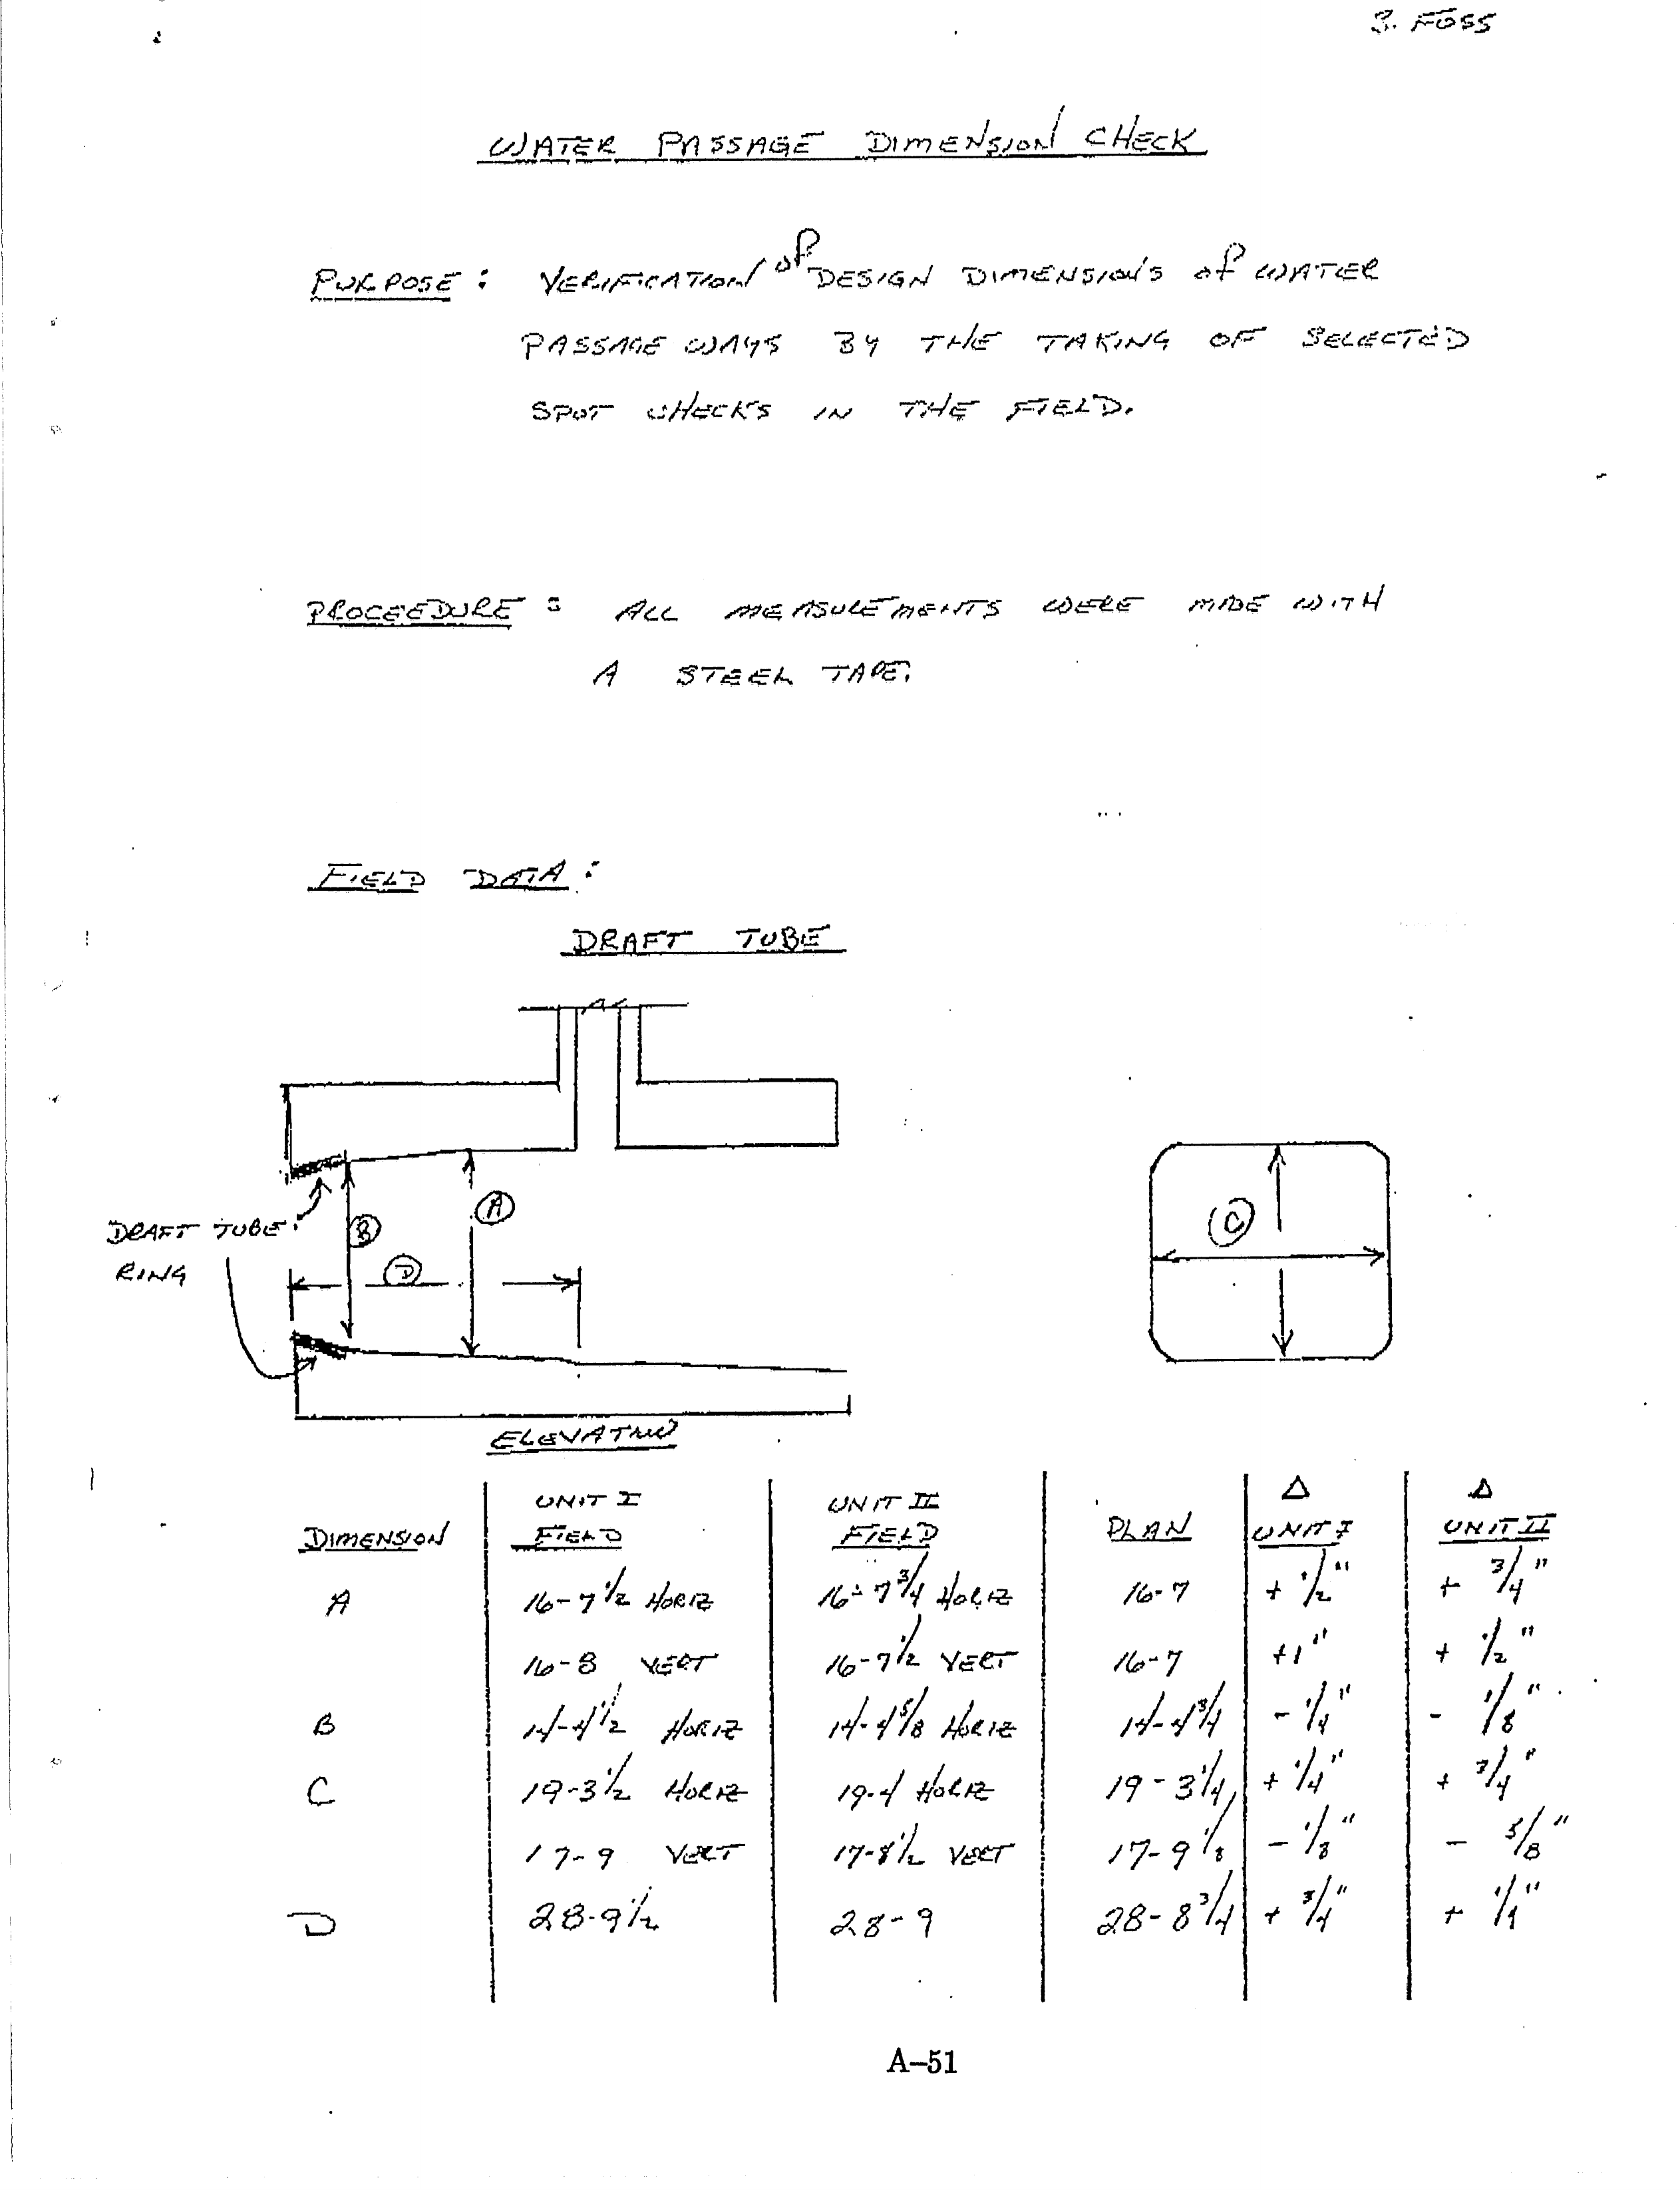 S. FOSS
WATER PASSAGE DIMENSION CHECK
PURPOSE : VERIFICATION of DESIGN DIMENSIONS of WATER
PASSAGE WAYS BY THE TAKING OF SELECTED
SPOT CHECKS IN THE FIELD.
PROCEEDURE : ALL MEASUREMENTS WERE MADE WITH
A STEEL TAPE.
FIELD DATA :
DRAFT TUBE
A
B
C
D
DRAFT TUBE
RING
ELEVATION
DIMENSION UNIT I FIELD UNIT II FIELD PLAN Δ UNIT I Δ UNIT II
A 16-7 1/2 HORIZ 16-7 3/4 HORIZ 16-7 + 1/2" + 3/4"
16-8 VERT 16-7 1/2 VERT 16-7 +1" + 1/2"
B 14-4 1/2 HORIZ 14-4 5/8 HORIZ 14-4 3/4 - 1/4" - 1/8"
C 19-3 1/2 HORIZ 19-4 HORIZ 19-3 1/4 + 1/4" + 3/4"
17-9 VERT 17-8 1/2 VERT 17-9 1/8 - 1/8" - 5/8"
D 28-9 1/2 28-9 28-8 3/4 + 3/4" + 1/4"
A–51